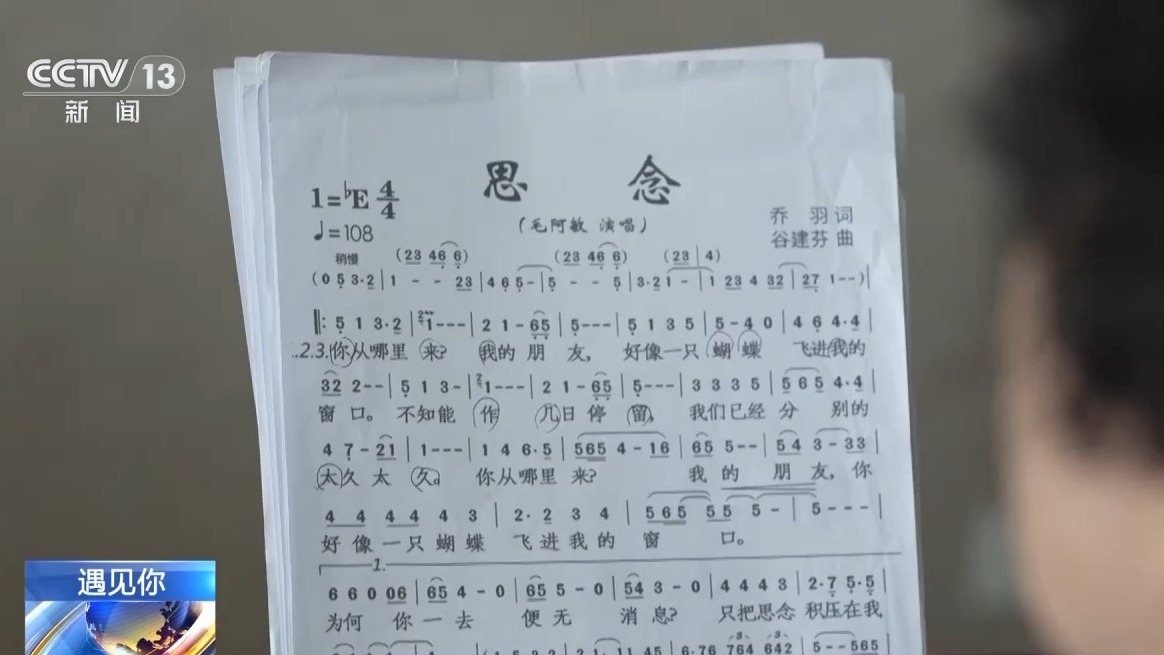 CCTV 13
新闻
思念
1=♭E 4/4
(毛阿敏 演唱)
乔 羽 词
♩=108
谷建芬 曲
稍慢
(23 46 6) (23 46 6) (23 | 4)
(0 5 3·2 | 1 - - 23 | 4 6 5 - | 5 - - 5 | 3·2 1 - | 1 23 4 32 | 27 1 - -) |
‖: 5 1 3·2 | 1 - - - | 2 1 - 65 | 5 - - - | 5 1 3 5 | 5 - 4 0 | 4 6 4·4 |
..2.3.你从哪里 来? 我的 朋 友, 好像一只 蝴 蝶 飞进我的
32 2 - - | 5 1 3 - | 1 - - - | 2 1 - 65 | 5 - - - | 3 3 3 5 | 565 4·4 |
窗 口。 不知能 作 几日 停 留, 我们已经 分 别的
4 7 - 21 | 1 - - - | 1 4 6·5 | 565 4 - 16 | 65 5 - - | 54 3 - 33 |
太久 太 久。 你从哪里 来? 我 的 朋 友, 你
4 4 4 4 4 3 | 2· 2 3 4 | 565 55 5 - | 5 - - - |
好 像 一 只 蝴蝶 飞 进 我 的 窗 口。
1.
6 6 0 06 | 65 4 - 0 | 65 5 - 0 | 54 3 - 0 | 4 4 4 3 | 2·7 5·5 |
为何 你 一 去 便 无 消 息? 只把思念 积压在我
6·76 764 642 | 5 - - 565
遇见你